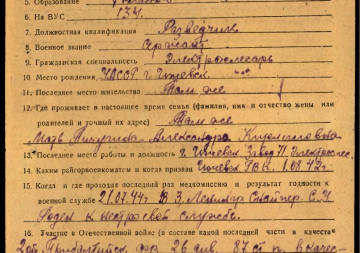 5. Образование
6. На ВУС 134
7. Должностная квалификация Разведчик
8. Военное звание Сержант
9. Гражданская специальность Электрослесарь
10. Место рождения УАССР г. Ижевск
11. Последнее место жительства Там же
12. Где проживает в настоящее время семья (фамилия, имя и отчество жены или
родителей и точный их адрес) Там же
Мать Александра Кирилловна
13. Последнее место работы и должность г. Ижевск Завод 71
14. Каким райгорвоенкоматом и когда призван Ижевск ГВК 1.08.42 г.
15. Когда и где проходил последний раз медкомиссию и результат годности к
военной службе 21.07.44 г.
Годен к строевой службе.
16. Участие в Отечественной войне (в составе какой последней части в качест-
2ой Прибалтийск. фр. 26 див. 87 ст. п. в качес-